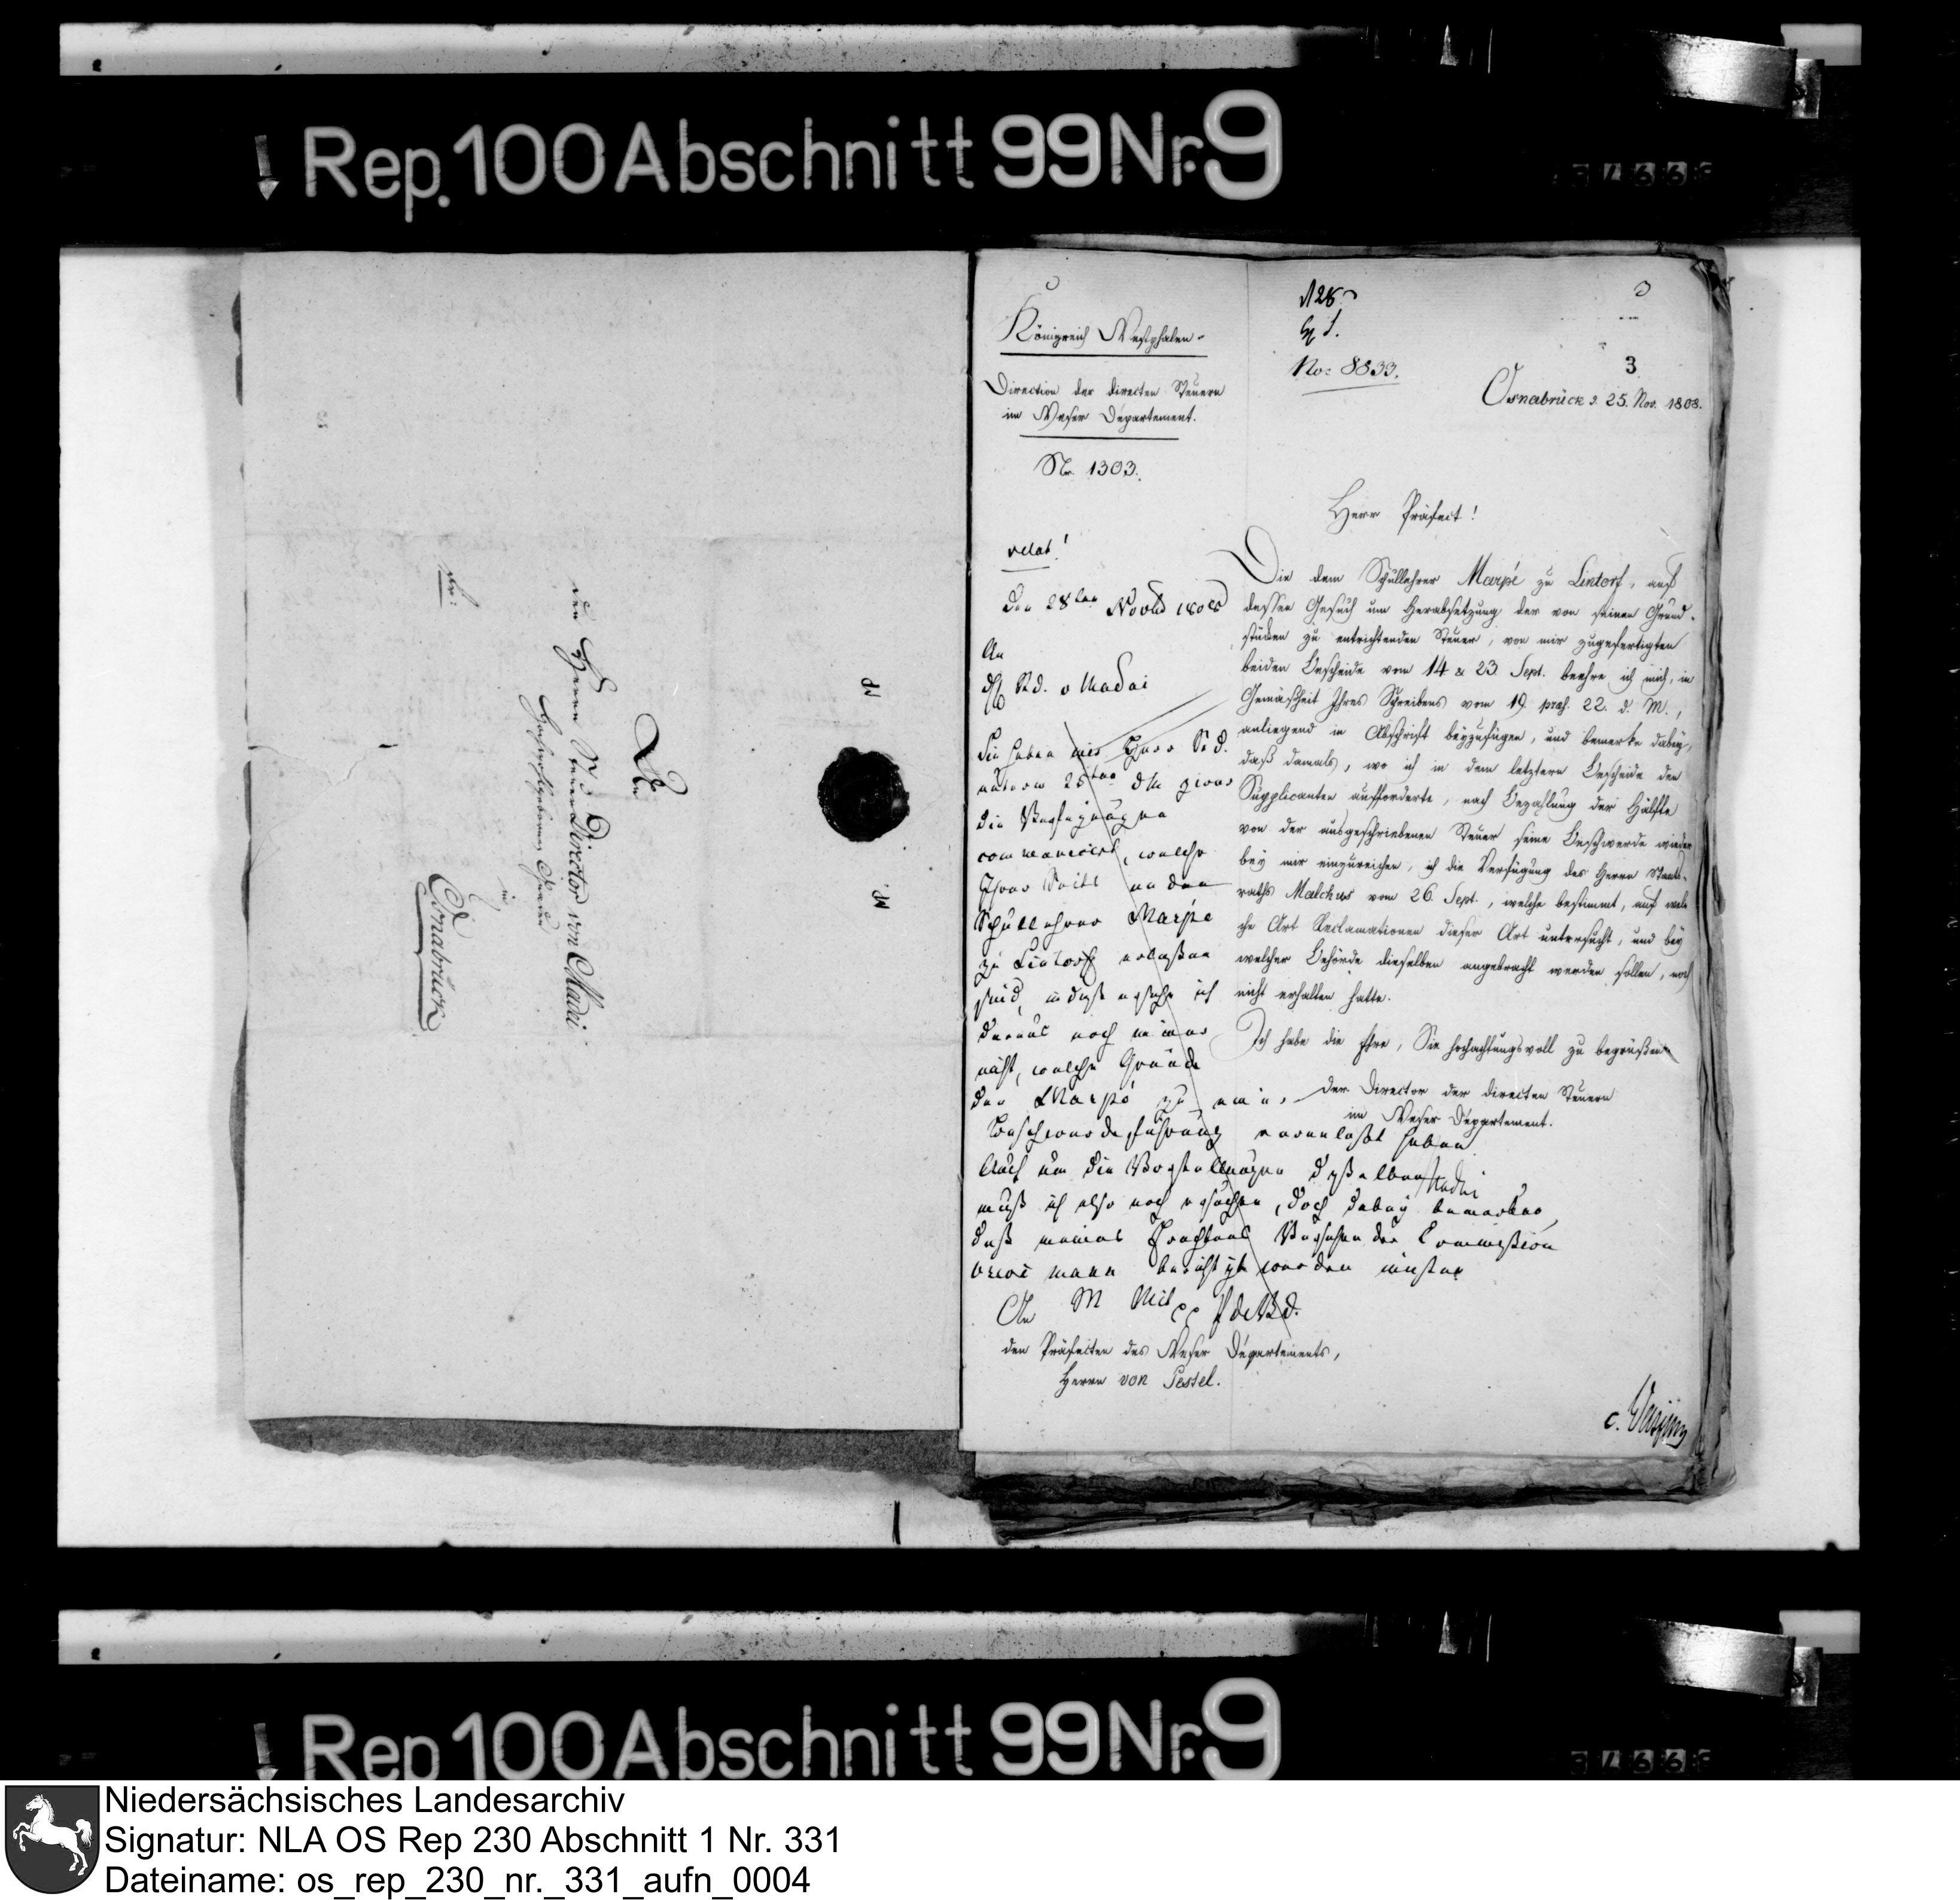 Rep. 100 Abschnitt 99 Nr. 9
An
den Herrn Steuer Director von Madai
Hochwohlgeboren
in
Osnabrück
Königreich Westphalen.
Direction der directen Steuern
im Weser Departement.
Nr. 1303.
No: 8833.
3
Osnabrück d. 25. Nov. 1808.
Herr Präfect!
Die dem Schullehrer Marpé zu Lintorf, auf
dessen Gesuch um Herabsetzung der von seinen Grund-
stücken zu entrichtenden Steuer, von mir zugefertigten
beiden Bescheide vom 14 & 23 Sept. beehre ich mich, in
Gemäsheit Ihres Schreibens vom 19 praes. 22. d. M.,
anliegend in Abschrift beyzufügen, und bemerke dabey,
daß damals, wo ich in dem letztern Bescheide den
Supplicanten aufforderte, nach Bezahlung der Hälfte
von der ausgeschriebenen Steuer seine Beschwerde wieder
bey mir einzureichen, ich die Verfügung des Herrn Staats-
raths Malchus vom 26. Sept., welche bestimmt, auf wel-
che Art Reclamationen dieser Art untersucht, und bey
welcher Behörde dieselben angebracht werden sollen, noch
nicht erhalten hatte.
Ich habe die Ehre, Sie hochachtungsvoll zu begrüßen
Der Director der directen Steuern
im Weser Departement.
Madai
relat!
den 28ten Novbr 1808
An
St d. v Madai
Sie haben mir Herr St. d.
unterm 25ten
die Verfügungen
communicirt, welche
Ihrer Seits an den
Schullehrer Marpé
zu Lintorf erlaßen
sind, indeß ersehe ich
daraus noch immer
nicht, welche Gründe
den Marpé zu einer
Beschwerdeführung veranlaßt haben
Auch um die Vorstellungen deßelben
muß ich also noch ersuchen, doch dabey bemerken,
daß meines
werden müsten
An
den Präfecten des Weser Departements,
Herrn von Pestel.
Rep 100 Abschnitt 99 Nr. 9
Niedersächsisches Landesarchiv
Signatur: NLA OS Rep 230 Abschnitt 1 Nr. 331
Dateiname: os_rep_230_nr._331_aufn_0004